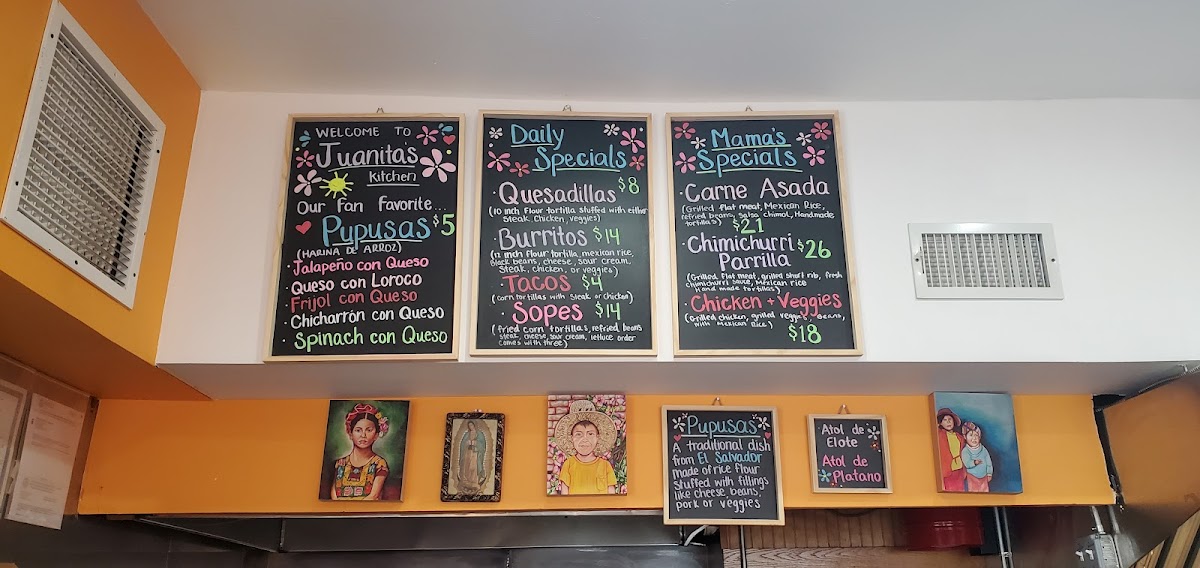 WELCOME TO
Juanita's
Kitchen
Our Fan Favorite...
Pupusas $5
(HARINA DE ARROZ)
· Jalapeño con Queso
· Queso con Loroco
· Frijol con Queso
· Chicharrón con Queso
· Spinach con Queso
Daily
Specials
· Quesadillas $8
(10 inch flour tortilla stuffed with either
steak, chicken, veggies)
· Burritos $14
(12 inch flour tortilla, mexican rice,
black beans, cheese, sour cream,
steak, chicken, or veggies)
· Tacos $4
(corn tortillas with steak or chicken)
· Sopes $14
(fried corn tortillas, refried beans
steak, cheese, sour cream, lettuce order
comes with three)
Mama's
Specials
· Carne Asada
(Grilled flat meat, Mexican Rice,
refried beans, salsa chimol, Handmade
tortillas) $21
· Chimichurri $26
Parrilla
(Grilled flat meat, grilled short rib, fresh
chimichurri sauce, Mexican rice
Hand made tortillas)
· Chicken + Veggies
(Grilled chicken, grilled veggies, Beans,
with Mexican Rice)
$18
Pupusas
A traditional dish
from El Salvador
made of rice flour
stuffed with fillings
like cheese, beans,
pork or veggies
· Atol de
Elote
· Atol de
Platano